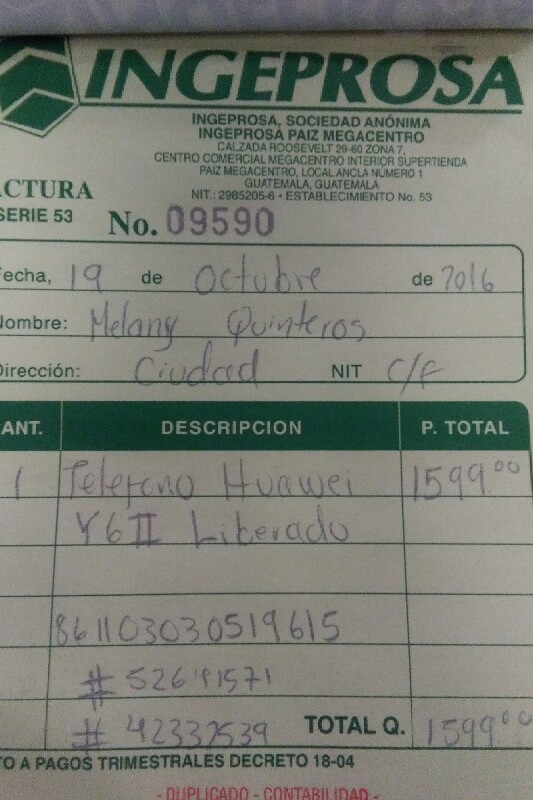 INGEPROSA
INGEPROSA, SOCIEDAD ANÓNIMA
INGEPROSA PAIZ MEGACENTRO
CALZADA ROOSEVELT 29-60 ZONA 7,
CENTRO COMERCIAL MEGACENTRO INTERIOR SUPERTIENDA
PAIZ MEGACENTRO, LOCAL ANCLA NUMERO 1
GUATEMALA, GUATEMALA
NIT.: 2985205-6 • ESTABLECIMIENTO No. 53
ACTURA
SERIE 53 No. 09590
Fecha, 19 de Octubre de 2016
Nombre: Melany Quinteros
Dirección: Ciudad NIT C/F
ANT. DESCRIPCION P. TOTAL
1 Telefono Huawei 1599.00
Y6II Liberado
861103030519615
#
# 42332539 TOTAL Q. 1599.00
TO A PAGOS TRIMESTRALES DECRETO 18-04
- DUPLICADO - CONTABILIDAD -